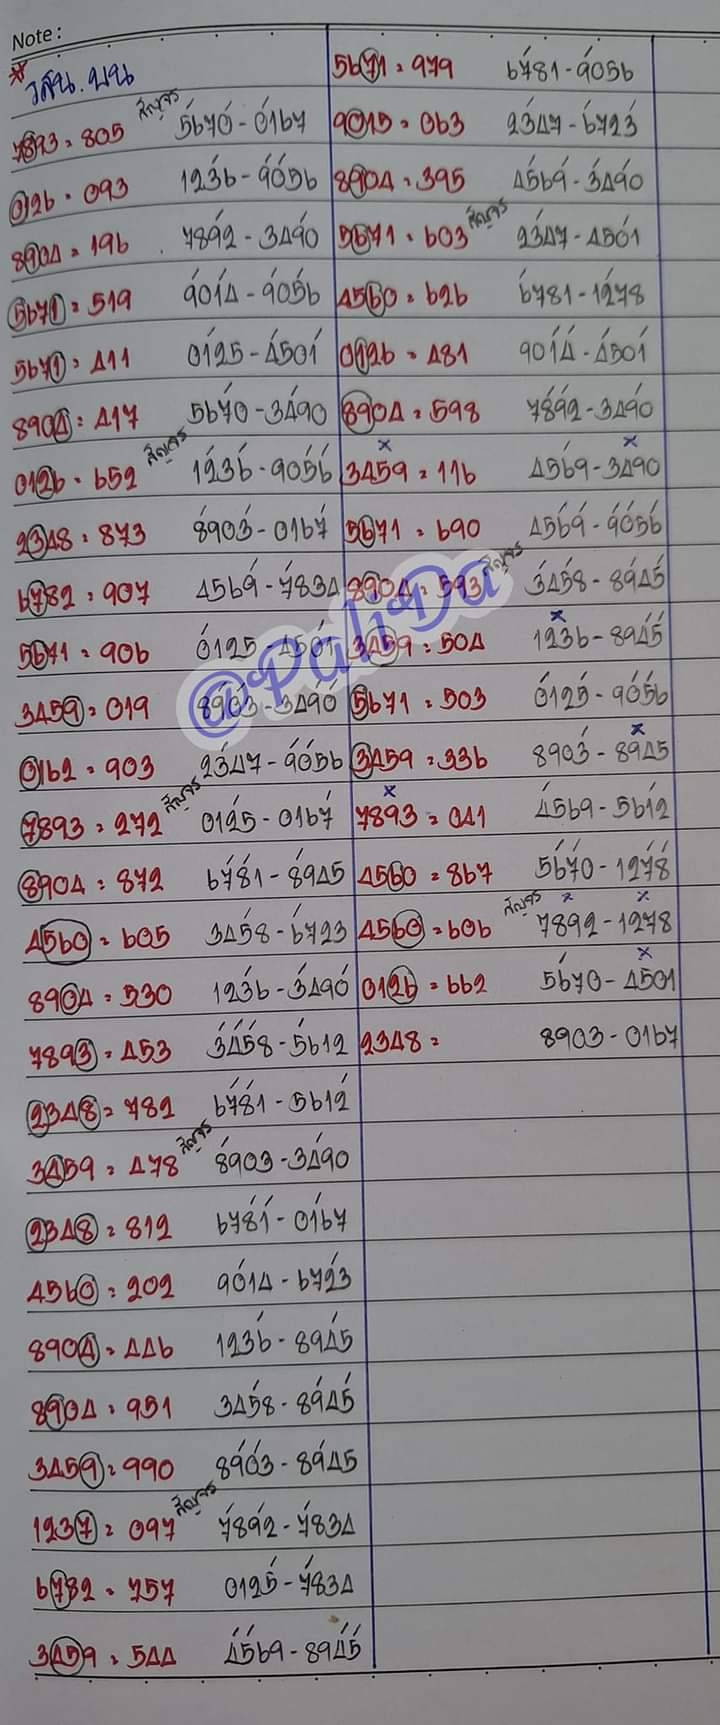 Note:
วสัน.บน
7893 = 805 สัญจร 5670 - 0167
0126 = 093 1236 - 9056
8904 = 196 7892 - 3490
5671 = 519 9014 - 9056
5671 = 411 0125 - 4501
8904 = 417 5670 - 3490
0126 = 652 สัญจร 1236 - 9056
2348 = 873 8903 - 0167
6782 = 907 4569 - 7834
5671 = 906 0125 - 4501
3459 = 019 8903 - 3490
0162 = 903 2347 - 9056
7893 = 272 สัญจร 0125 - 0167
8904 = 872 6781 - 8945
4560 = 605 3458 - 6723
8904 = 530 1236 - 3490
7893 = 453 3458 - 5612
2348 = 782 6781 - 5612
3459 = 478 สัญจร 8903 - 3490
2348 = 812 6781 - 0167
4560 = 202 9014 - 6723
8904 = 446 1236 - 8945
8904 = 951 3458 - 8945
3459 = 990 8903 - 8945
1237 = 097 สัญจร 7892 - 7834
6782 = 757 0125 - 7834
3459 = 544 4569 - 8945
5671 = 979 6781 - 9056
9015 = 063 2347 - 6723
8904 = 395 4569 - 3490
5671 = 603 สัญจร 2347 - 4501
4560 = 626 6781 - 1278
0126 = 481 9014 - 4501
8904 = 598 7892 - 3490
3459 = 116 4569 - 3490
5671 = 690 4569 - 9056
8904 = 593 สัญจร 3458 - 8945
3459 = 504 1236 - 8945
5671 = 503 0125 - 9056
3459 = 336 8903 - 8945
7893 = 041 4569 - 5612
4560 = 867 5670 - 1278
4560 = 606 สัญจร 7892 - 1278
0126 = 662 5670 - 4501
2348 = 8903 - 0167
@PaliDa